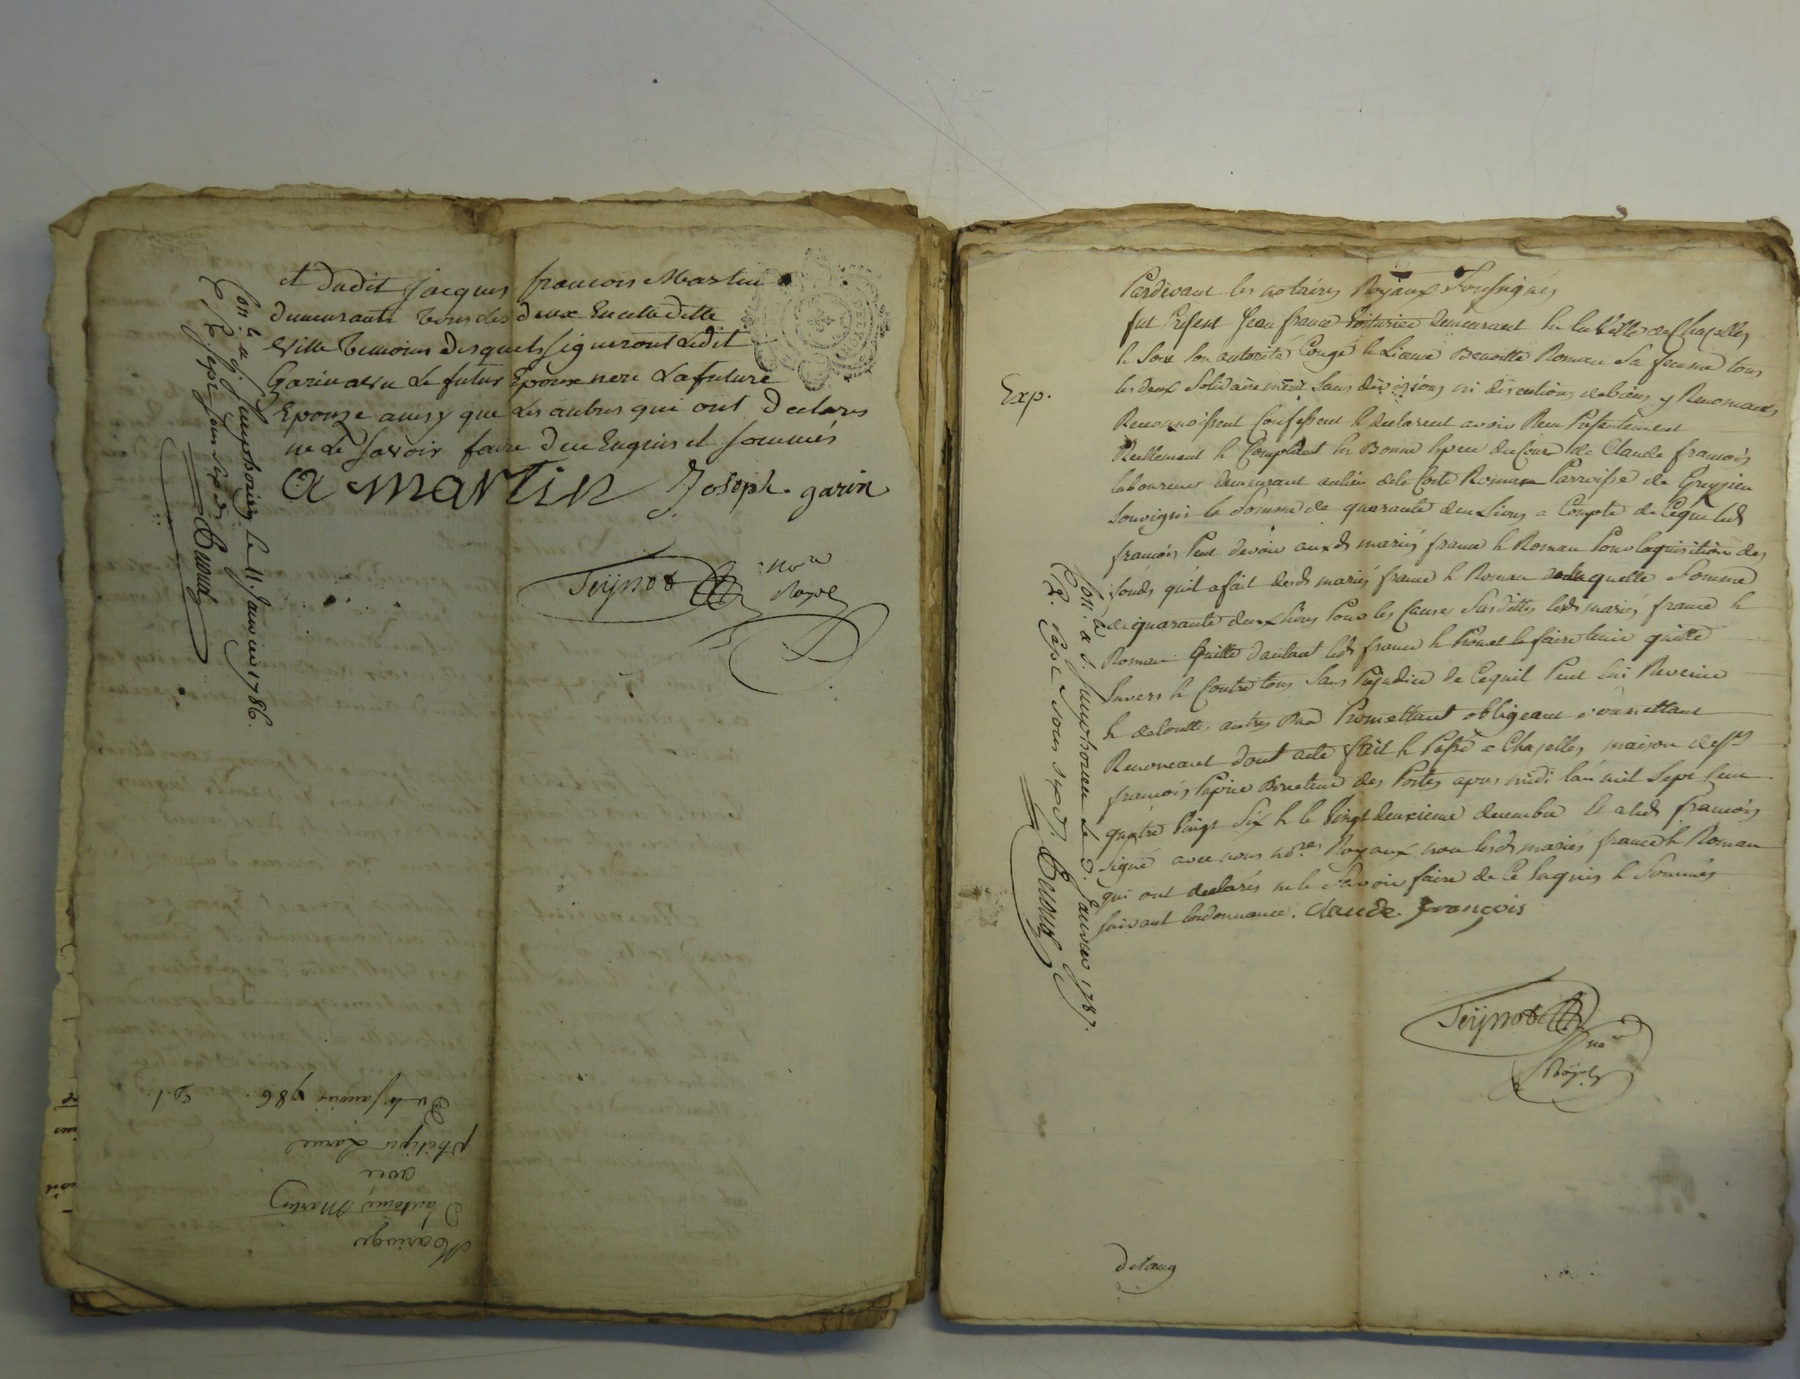 et dudit jacques francois Martin
demeurants tous les deux En cette ditte
Ville temoins desquels signeront Ledit
Garin avec Le futur Epoux non La future
Epouze ainsy que Les autres qui ont Declarés
ne le savoir faire De ce Enquis et sommés
a martin Joseph garin
Teÿnod no.re
Royal
Con.lé a S.t Simphorien le 11 Janvier 1786.
R. sept sous six d.
Mariage
D'antoine Martin
avec
philipe Larue
Du 4 janvier 1786.
D. l.
Pardevant les notaires Royaux Soussignés
fut Présent Jean france Voiturier demeurant en la Ville de Chazelles
h Sous son autorité Congé h Licence Benoitte Roman Sa femme tous
les deux Solidairement Sans divizions ni discutions de biens y Renonceants
Exp.
Reconnoissent Confessent h declarent avoir Reçu Présentement
Réellement h Comptant en Bonne Espece du Cour de Claude françois
laboureur demeurant au lieu de la Cote Roman Parroisse de Grezieu
Souvignis la Somme de quarante deux Livres a Compte de Ce que led
françois Peut devoir auxds mariés france h Roman Pour laquisition des
fonds qu'il a fait desds mariés france h Roman de laquelle Somme
de quarante deux livres Pour les Causes Susdittes lesds mariés france h
Roman quitte d'autant led françois h Promet le faire tenir quitte
Envers h Contre tous Sans Préjudice de Ce qu'il Peut lui Revenir
h de toutes autres Promettant obligeant soumettant
Renonceant dont acte fait h Passé a Chazelles maison de Sr
françois Directeur des Postes apres midi l'an mil Sept Cent
quatre Vingt Six h le Vingt deuxieme decembre h a led françois
Signé avec nous no.res Royaux non lesds mariés france h Roman
qui ont declarés ne le Savoir faire de Ce Enquis h Sommés
Suivant lordonnance. claude françois
Teÿnod no.re
Royal
Con.lé a S. Simphorien le 3. Janvier 1787.
R. sept sous six d.